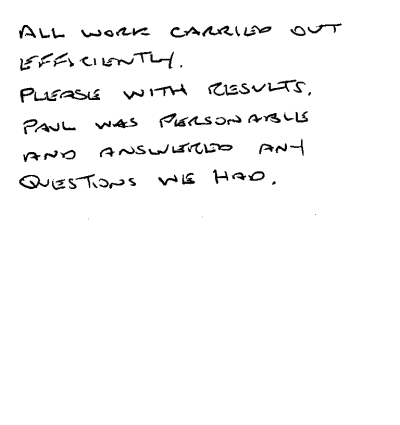 ALL WORK CARRIED OUT
EFFICIENTLY.
PLEASE WITH RESULTS.
PAUL WAS PERSONABLE
AND ANSWERED ANY
QUESTIONS WE HAD.